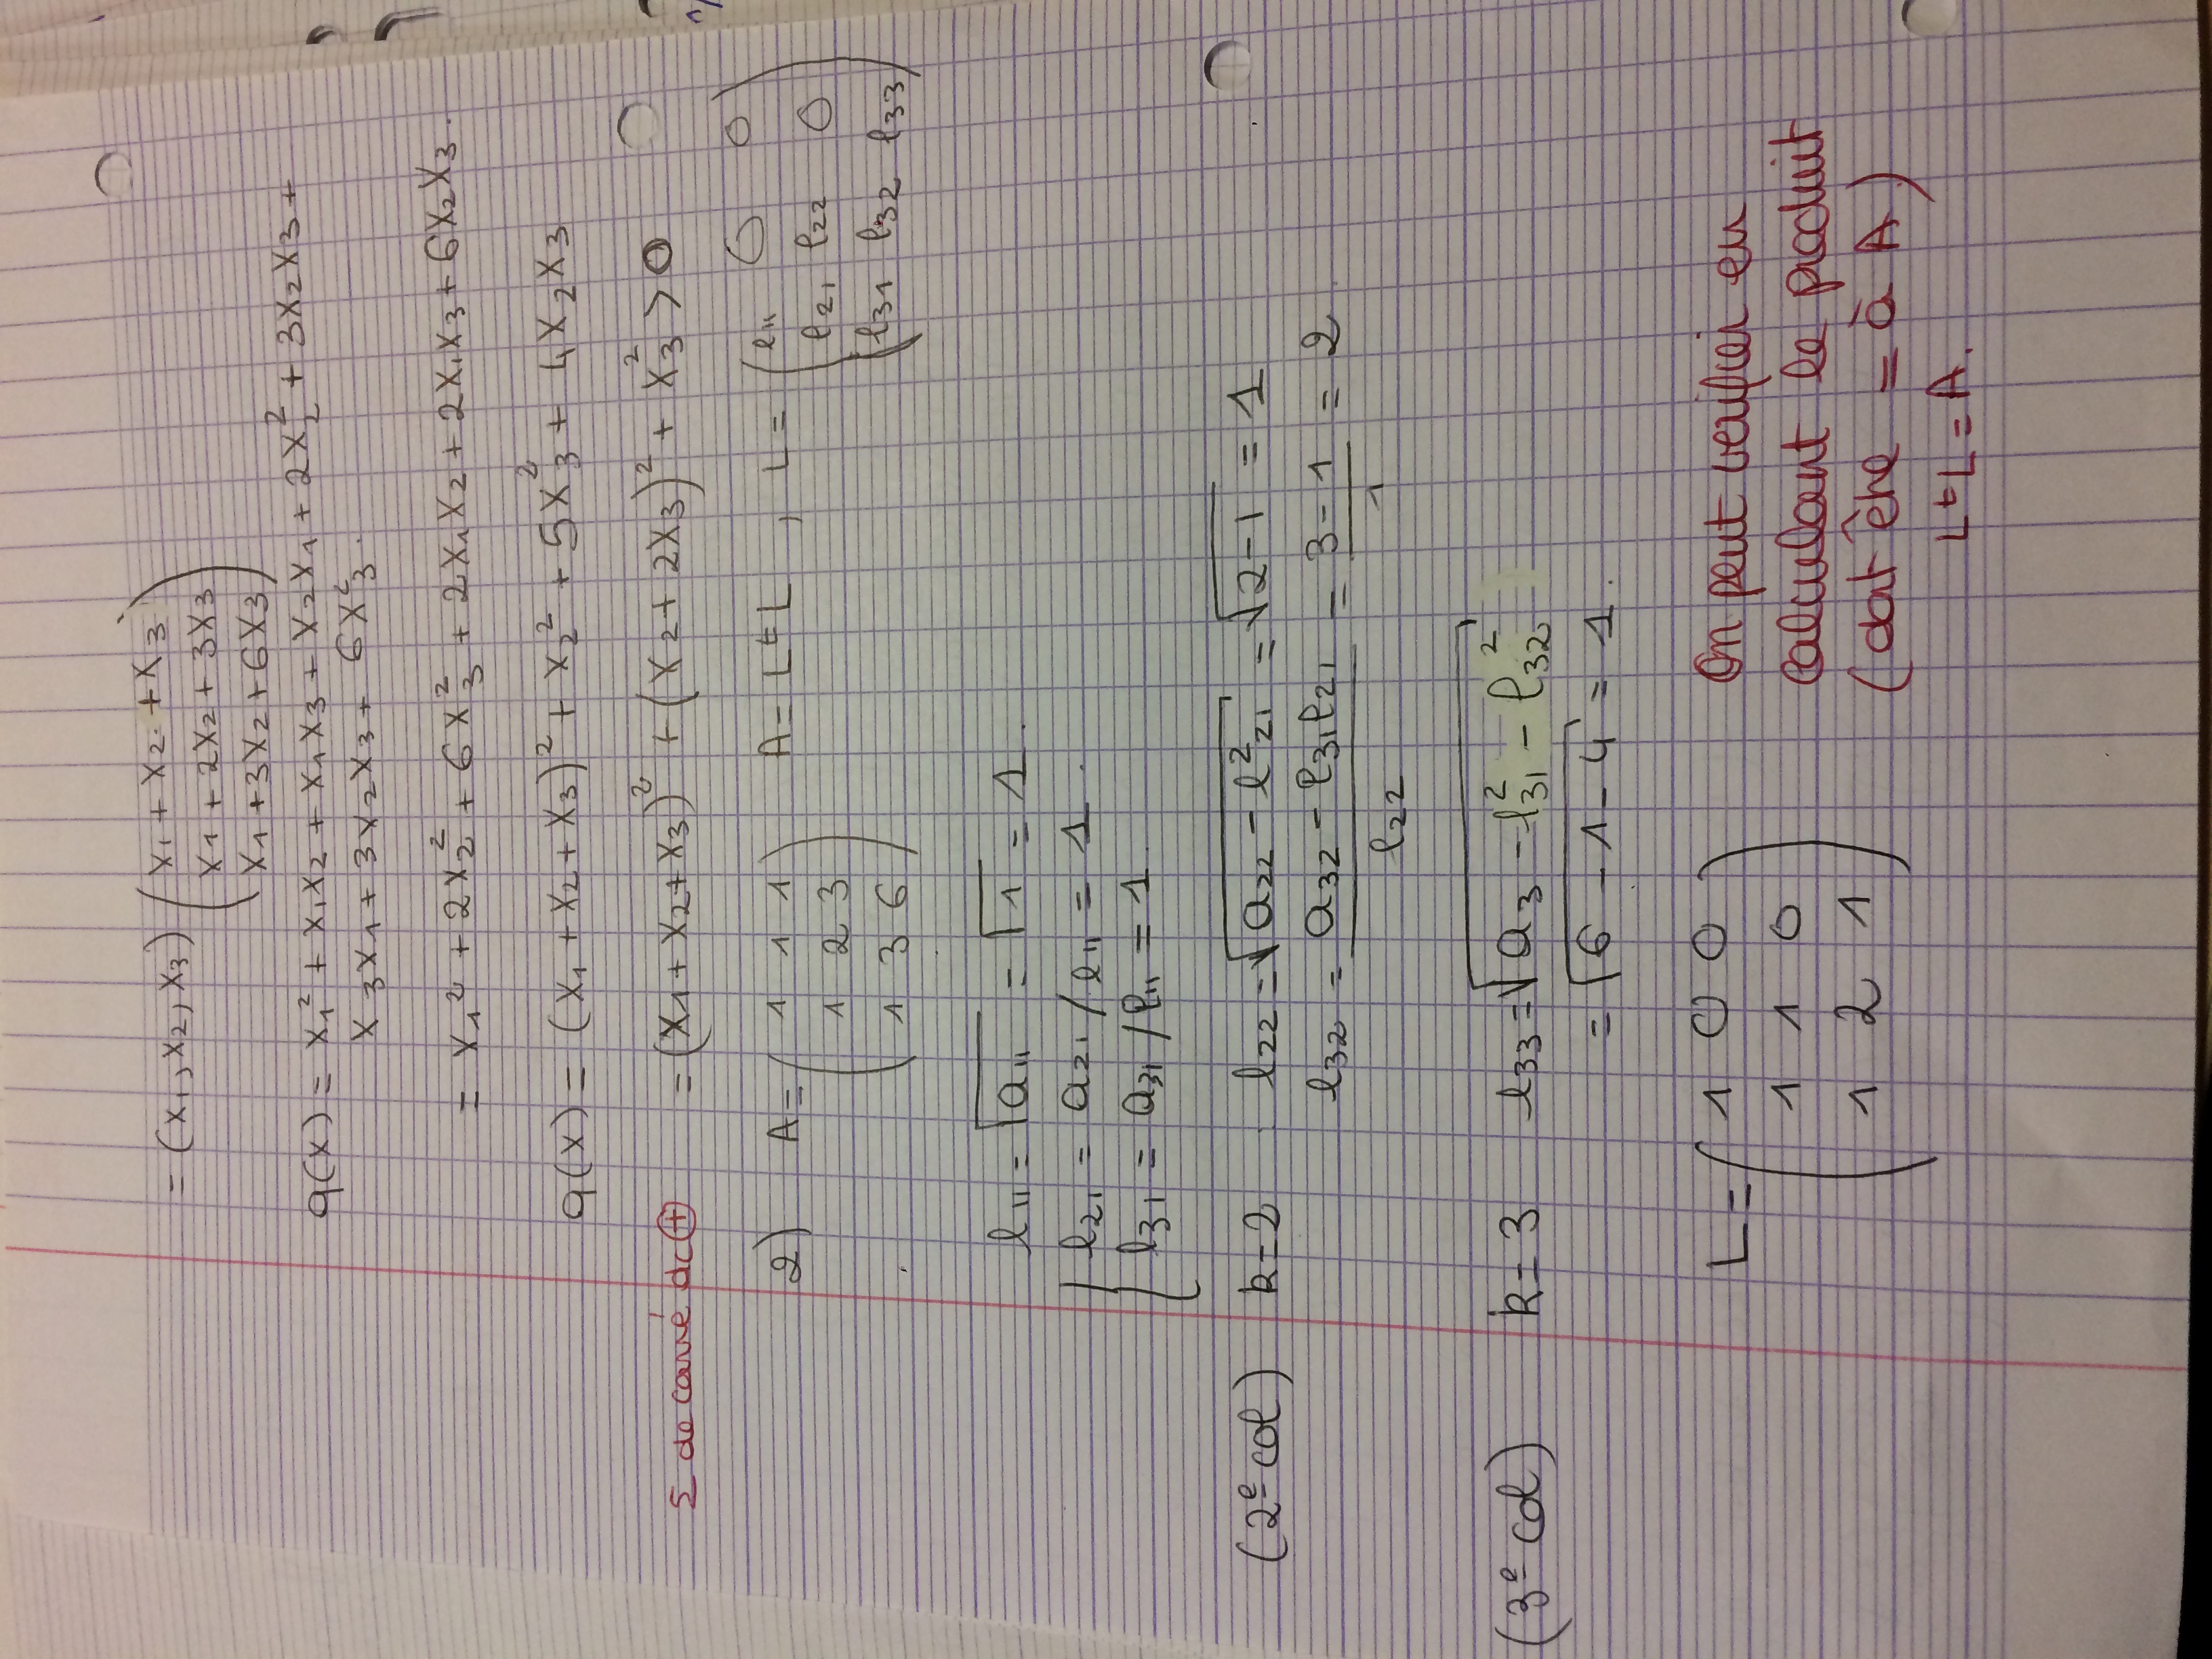 = (x₁, x₂, x₃) ( x₁ + x₂ + x₃
x₁ + 2x₂ + 3x₃
x₁ + 3x₂ + 6x₃ )
q(x) = x₁² + x₁x₂ + x₁x₃ + x₂x₁ + 2x₂² + 3x₂x₃ +
x₃x₁ + 3x₂x₃ + 6x₃².
= x₁² + 2x₂² + 6x₃² + 2x₁x₂ + 2x₁x₃ + 6x₂x₃.
q(x) = (x₁ + x₂ + x₃)² + x₂² + 5x₃² + 4x₂x₃
Σ de carré dc ⊕ = (x₁ + x₂ + x₃)² + (x₂ + 2x₃)² + x₃² > 0
2) A = ( 1 1 1
1 2 3
1 3 6 ) A = L ᵗL , L = ( l₁₁ 0 0
l₂₁ l₂₂ 0
l₃₁ l₃₂ l₃₃ )
l₁₁ = √a₁₁ = √1 = 1.
l₂₁ = a₂₁ / l₁₁ = 1.
l₃₁ = a₃₁ / l₁₁ = 1.
(2e col) k = 2 l₂₂ = √(a₂₂ - l²₂₁) = √(2-1) = 1
l₃₂ = (a₃₂ - l₃₁l₂₁) / l₂₂ = (3 - 1) / 1 = 2.
(3e col) k = 3 l₃₃ = √(a₃ - l²₃₁ - l²₃₂)
= √(6 - 1 - 4) = 1.
L = ( 1 0 0
1 1 0
1 2 1 )
On peut verifier en
calculant le produit
(doit être = à A)
L ᵗL = A.